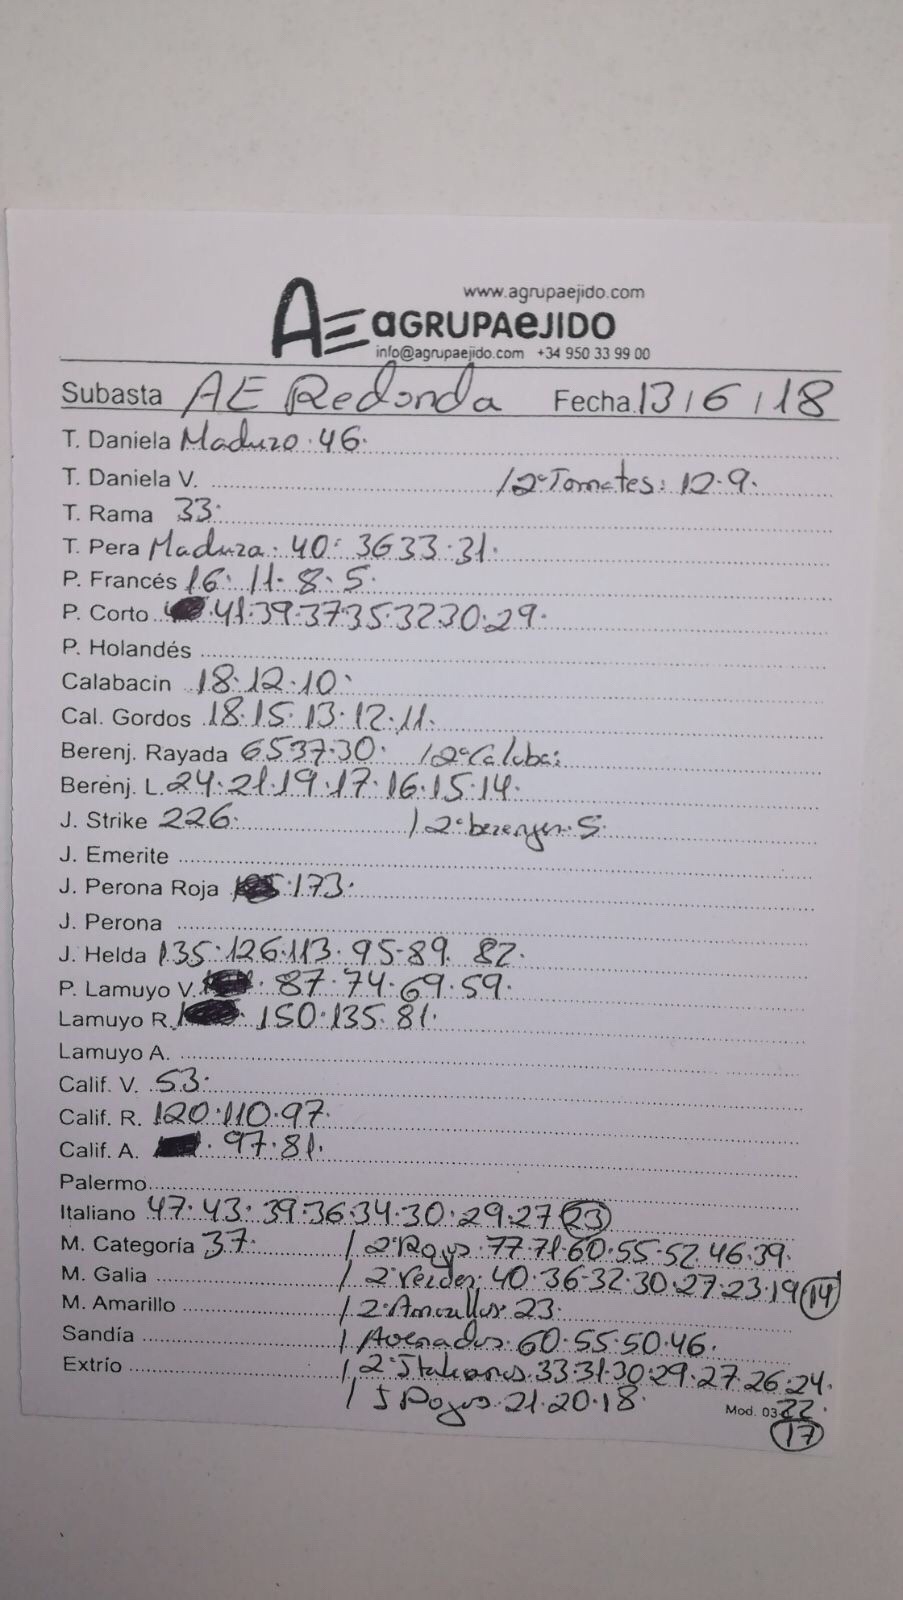 www.agrupaejido.com
AE aGRUPAeJIDO
info@agrupaejido.com +34 950 33 99 00
Subasta AE Redonda Fecha 13/6/18
T. Daniela Maduro. 46.
T. Daniela V. / 2ªTomates: 12.9.
T. Rama 33.
T. Pera Madura. 40. 36 33.31.
P. Francés 16. 11. 8. 5.
P. Corto 41.39.37 35.32 30.29.
P. Holandés
Calabacin 18.12.10.
Cal. Gordos 18.15.13.12.11.
Berenj. Rayada 65 37.30. / 2ªCalaba:
Berenj. L. 24.21.19.17.16.15.14.
J. Strike 226. / 2ª berenjen. 5.
J. Emerite
J. Perona Roja 173.
J. Perona
J. Helda 135.126.113. 95-89. 82.
P. Lamuyo V. 87.74.69.59.
Lamuyo R. 150.135.81.
Lamuyo A.
Calif. V. 53.
Calif. R. 120.110.97.
Calif. A. 97.81.
Palermo
Italiano 47.43.39.36.34.30.29.27 23
M. Categoría 37. / 2ªRojos.77.71.60.55.52.46.39.
M. Galia / 2ªVerdes.40.36-32.30.27.23.19 14
M. Amarillo / 2ªAmarillos.23.
Sandía / Asenados.60.55.50.46.
Extrío / 2ªItalianos.33.31.30.29.27.26.24.
/ I Rojos.21.20.18. Mod. 03 22.
17